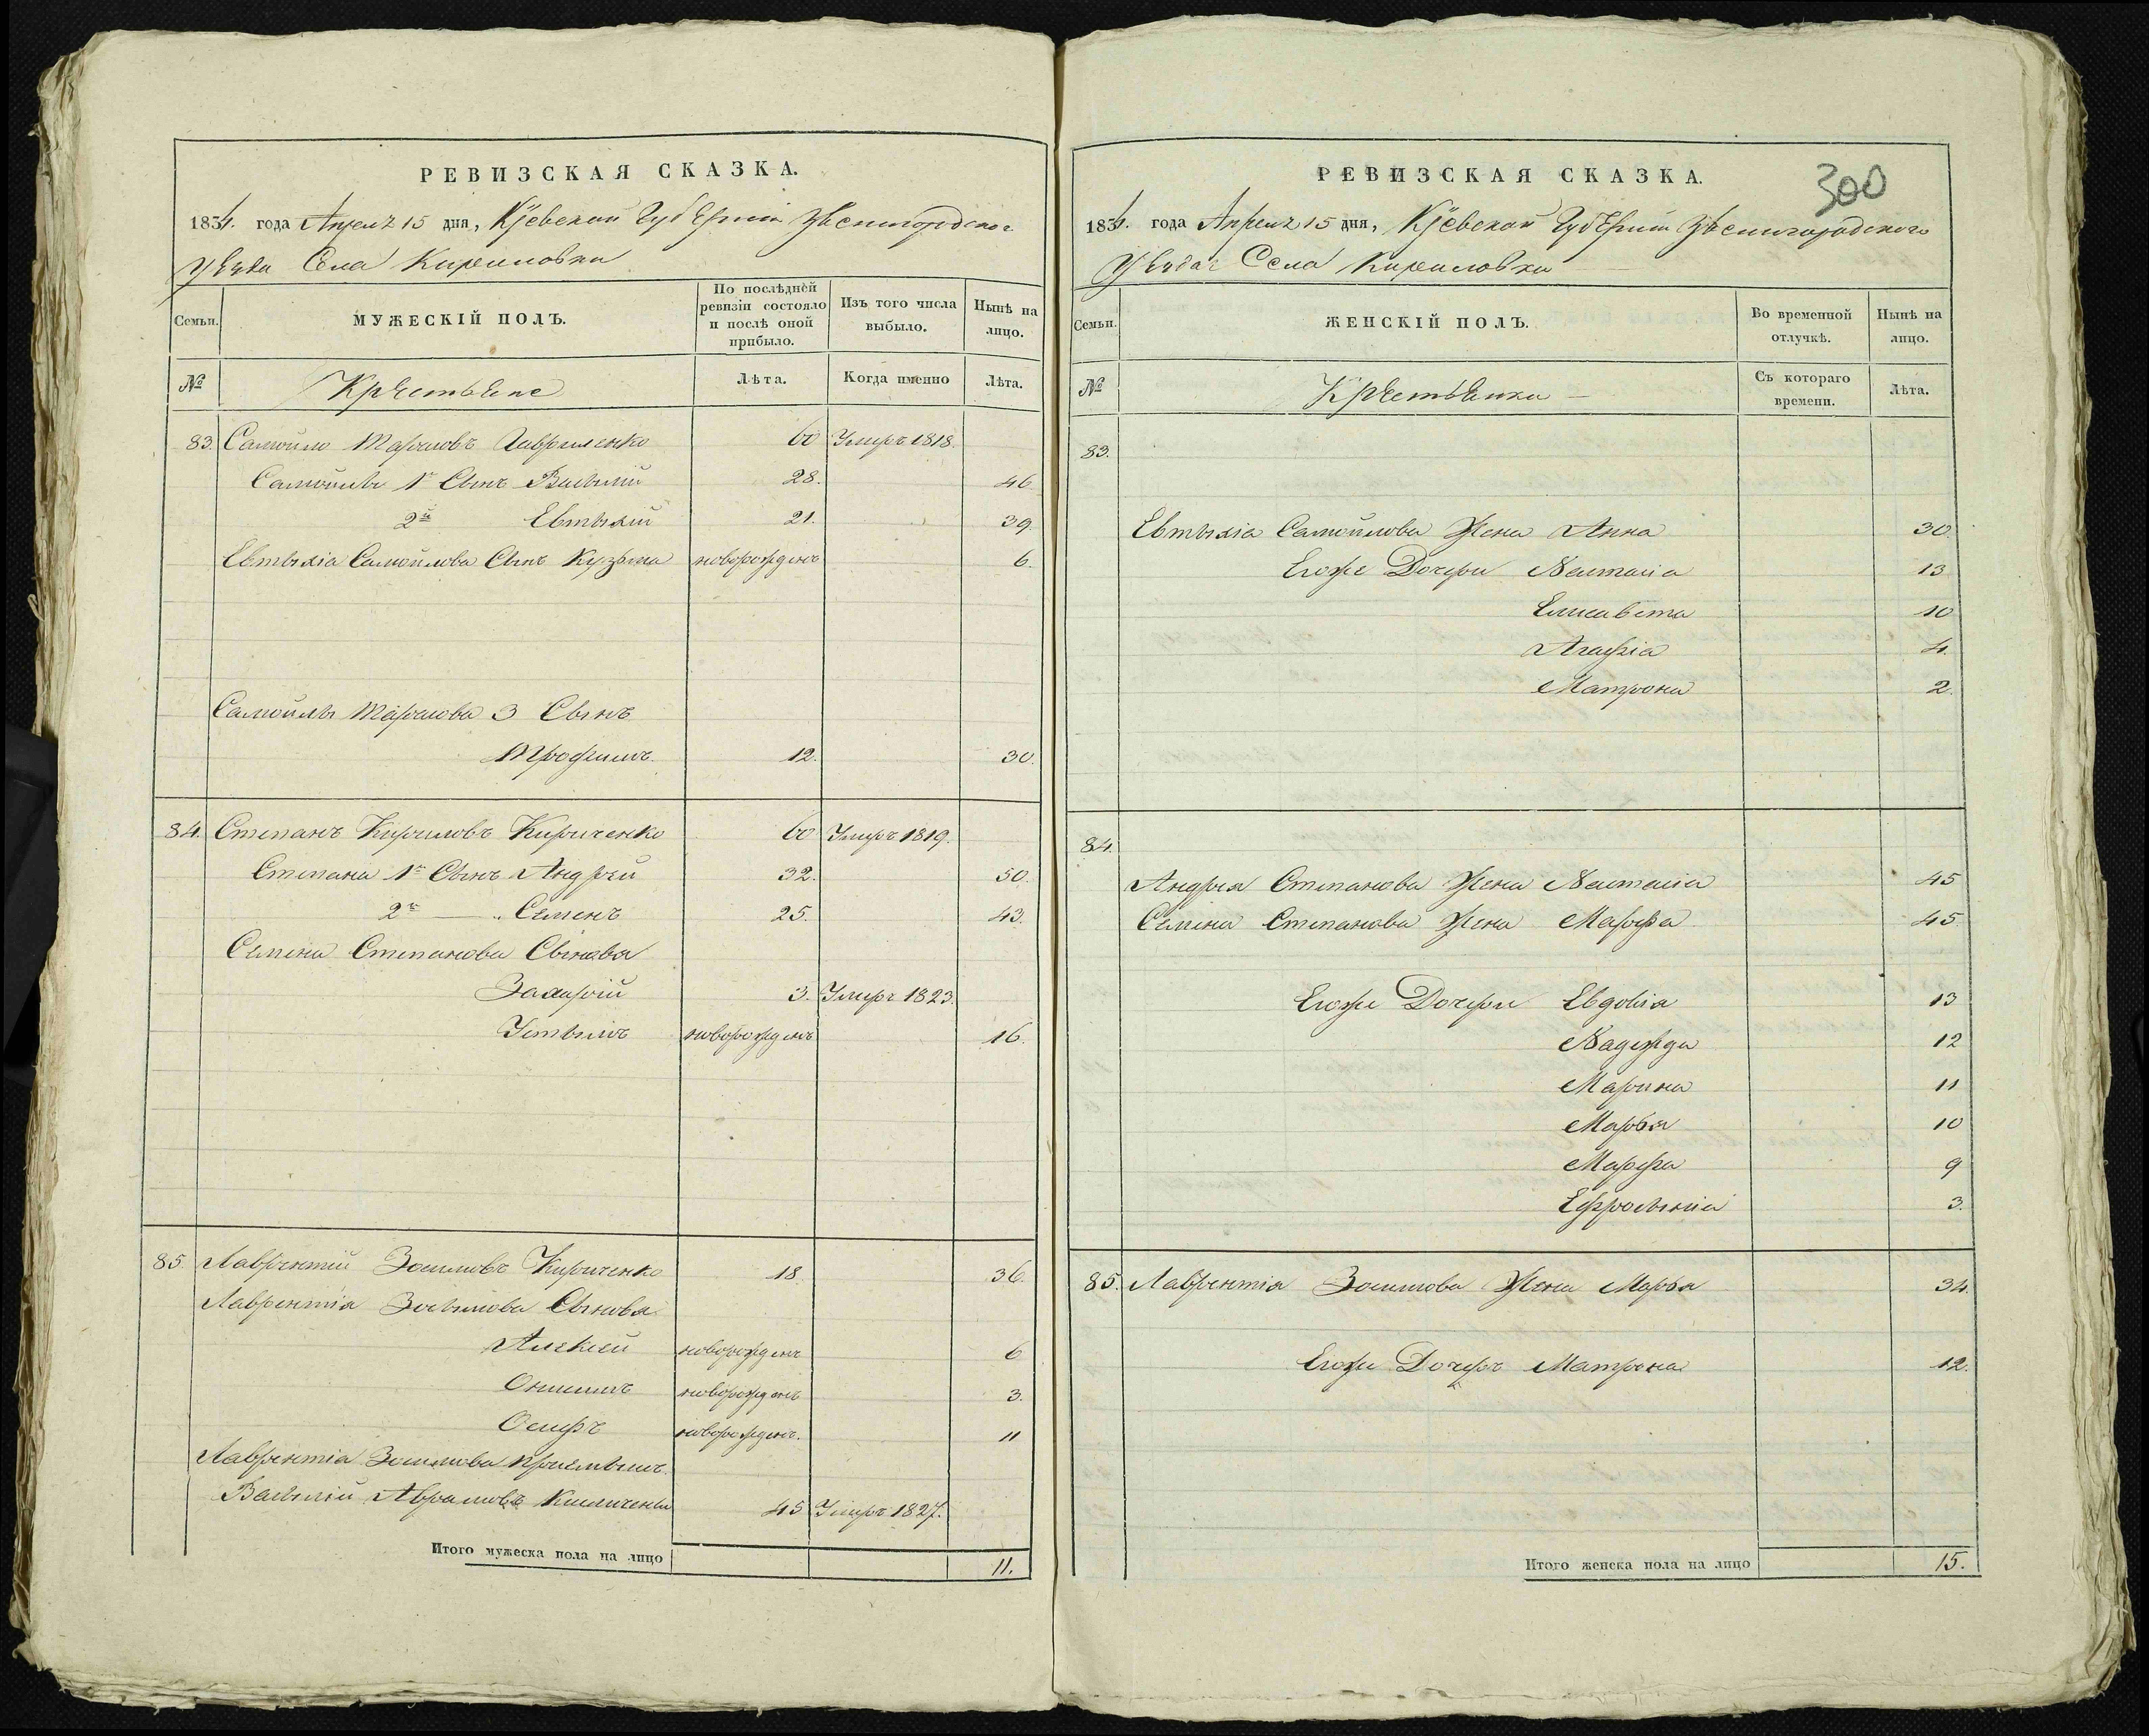 РЕВИЗСКАЯ СКАЗКА.
1834. года Апреля 15 дня, Кіевской Губерніи Звенигородского
уезда Села Кириловки
Семьи.
МУЖЕСКІЙ ПОЛЪ.
По послѣдней ревизіи состояло и послѣ оной прибыло.
Изъ того числа выбыло.
Нынѣ на лицо.
№
Крестьяне
Лѣта.
Когда именно
Лѣта.
83. Самойло Тарасовъ Гавриленко 60 Умеръ 1818.
Самойлы 1й Сынъ Василій 28. 46
2й Евтыхій 21. 39.
Евтыхія Самойлова Сынъ Кузьма новорожденъ 6.
Самойлы Тарасова 3 Сынъ
Трофимъ 12. 30.
84. Степанъ Кириловъ Кириченко 60 Умеръ 1819.
Степана 1й Сынъ Андрей 32. 50.
2й — „ Семенъ 25. 43.
Семена Степанова Сыновья
Захарій 3. Умеръ 1823.
Устымъ новорожденъ 16.
85. Лаврентій Зосимовъ Кириченко 18 36.
Лаврентія Зосымова Сыновья
Алексей новорожденъ 6
Онисимъ новорожденъ 3.
Осифъ новорожденъ. 11
Лаврентія Зосимова приемышъ
Василій Аврамовъ 45 Умеръ 1827.
Итого мужеска пола на лицо 11.
РЕВИЗСКАЯ СКАЗКА.
300
1834. года Апреля 15 дня, Кіевской Губерніи Звенигородского
уезда Села Кириловки
Семьи.
ЖЕНСКІЙ ПОЛЪ.
Во временной отлучкѣ.
Нынѣ на лицо.
№
Крестьянки
Съ котораго времени.
Лѣта.
83.
Евтыхія Самойлова Жена Анна 30.
Егоже Дочери Настасія 13
Елисавета 10
Агафія 4.
Матрона 2.
84.
Андрея Степанова Жена Настасія 45
Семена Степанова Жена Марфа 45.
Егоже Дочери Евдокія 13
Надежда 12
Марина 11
Марья 10
Марфа 9
Ефросынія 3.
85. Лаврентія Зосимова Жена Марья 34.
Егоже Дочерь Матрона 12.
Итого женска пола на лицо 15.